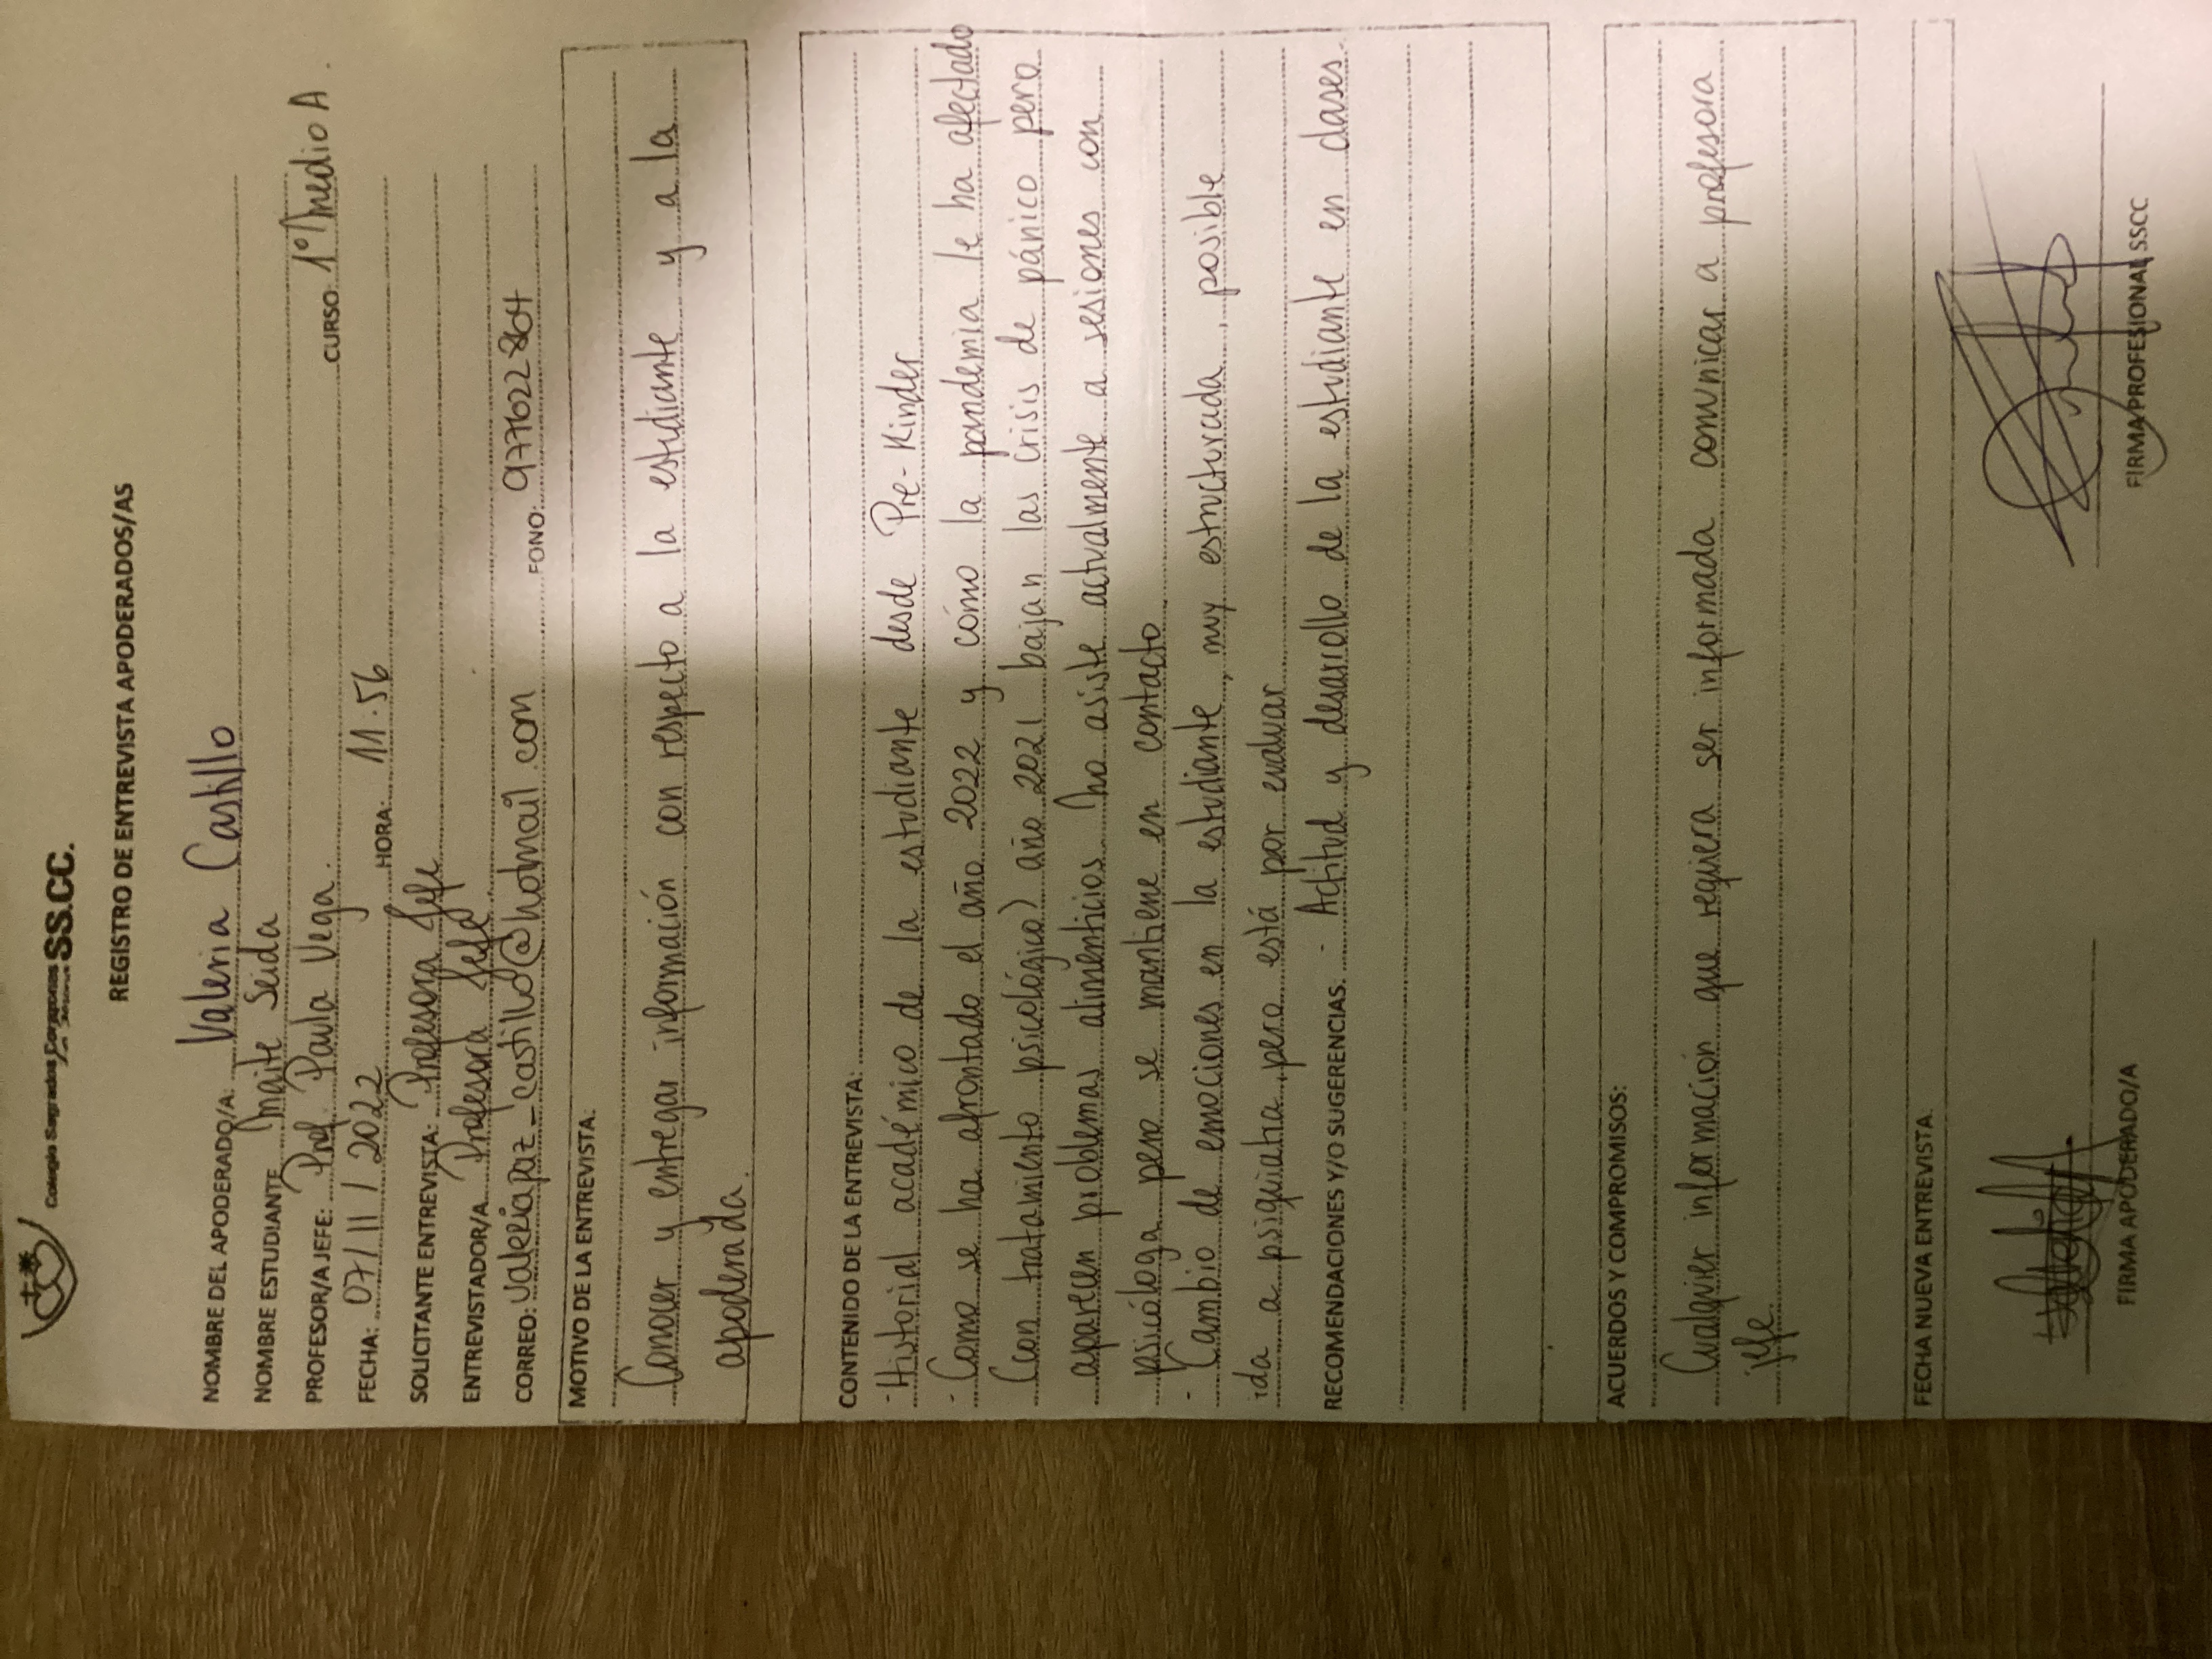 Colegio Sagrados Corazones SS.CC.
REGISTRO DE ENTREVISTA APODERADOS/AS
NOMBRE DEL APODERADO/A: Valeria Castillo
NOMBRE ESTUDIANTE Maite Seida
PROFESOR/A JEFE: Prof. Paula Vega. CURSO: 1° Medio A.
FECHA: 07/11/2022 HORA: 11:56
SOLICITANTE ENTREVISTA: Profesora Jefe
ENTREVISTADOR/A Profesora Jefe
CORREO: valeriapaz_castillo@hotmail.com FONO: 977622864
MOTIVO DE LA ENTREVISTA:
Conocer y entregar información con respecto a la estudiante y a la
apoderada.
CONTENIDO DE LA ENTREVISTA:
- Historial académico de la estudiante desde Pre-Kinder
- Como se ha afrontado el año 2022 y cómo la pandemia le ha afectado
(con tratamiento psicológico) año 2021 bajan las crisis de pánico pero
aparecen problemas alimenticios. No asiste actualmente a sesiones con
psicóloga pero se mantiene en contacto
- Cambio de emociones en la estudiante, muy estructurada, posible
ida a psiquiatra, pero está por evaluar
RECOMENDACIONES Y/O SUGERENCIAS. - Actitud y desarollo de la estudiante en clases.
ACUERDOS Y COMPROMISOS:
Cualquier información que requiera ser informada comunicar a profesora
jefe.
FECHA NUEVA ENTREVISTA
FIRMA APODERADO/A
FIRMA PROFESIONAL SSCC